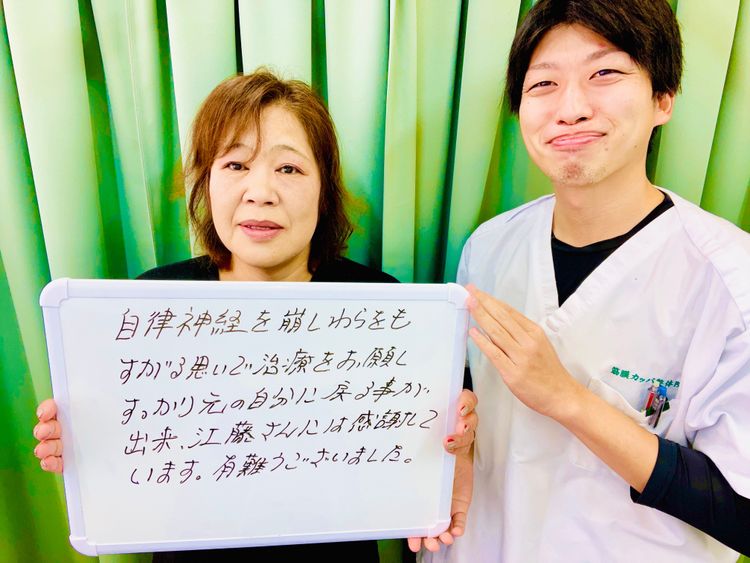 自律神経を崩しわらをも
すがる思いで治療をお願し
すっかり元の自分に戻る事が
出来、江藤さんには感謝して
います。有難うございました。
筋膜カッパ整体院